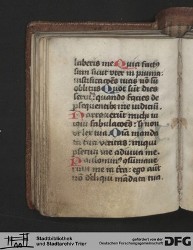 laberis me Quia factus
sum sicut vter in pruina
iustificaciões tuas nō sū
oblitus Quot sūt dies
serui quando facies de
psequentibꝫ me iudiciū
Narrauerūt michi in
iqui fabulacões sꝫ non
vt lex tua Oīa manda
ta tua veritas iniqui
psecuti sūt me adiuua me
Paulominꝰ cōsūmaue
runt me in tra ego aūt
nō dereliqui mādata tua
Stadtbibliothek
und Stadtarchiv Trier
gefördert von der
Deutschen Forschungsgemeinschaft
DFG